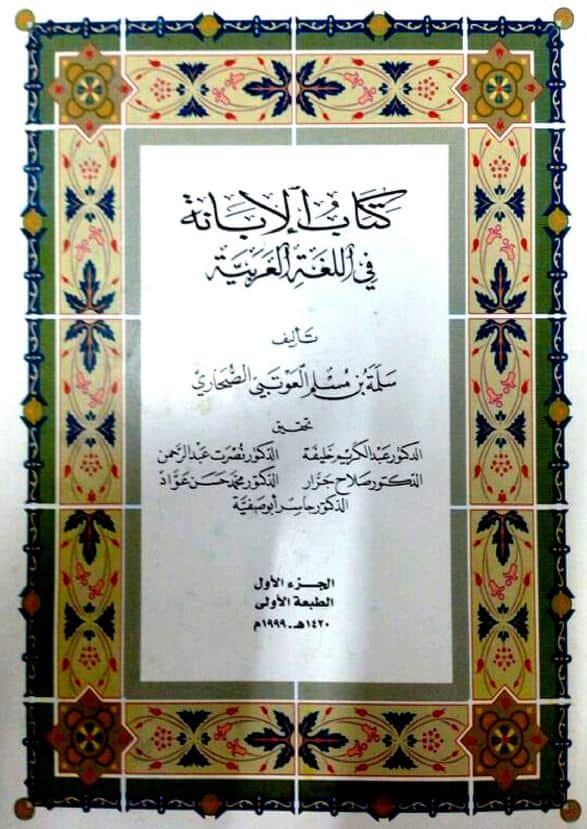 كتاب الإبانة
في اللغة العربية
تأليف
سلمة بن مسلم العوتبي الصحاري
تحقيق
الدكتور عبد الكريم خليفة الدكتور نصرت عبد الرحمن
الدكتور صلاح جرار الدكتور محمد حسن عواد
الدكتور جاسر أبو صفية
الجزء الأول
الطبعة الأولى
١٤٢٠هـ - ١٩٩٩م